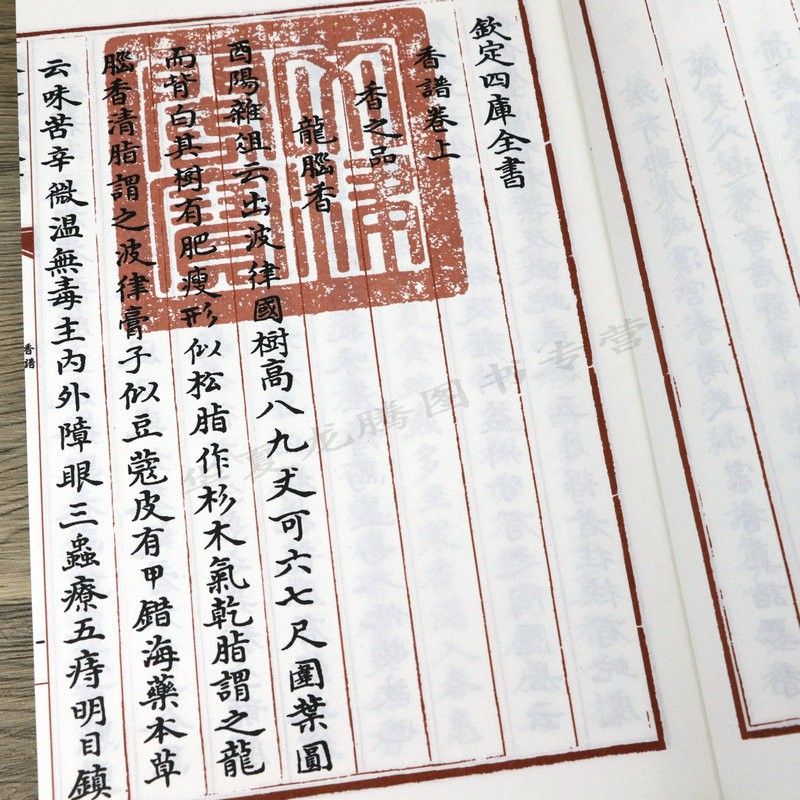 欽定四庫全書
香譜卷上
香之品
龍腦香
酉陽雜俎云出波律國樹高八九丈可六七尺圍葉圓
而背白其樹有肥瘦形似松脂作杉木氣乾脂謂之龍
腦香清脂謂之波律膏子似豆蔻皮有甲錯海藥本草
云味苦辛微温無毒主内外障眼三蟲療五痔明目鎮
香譜
一
華夏龙腾图书专营